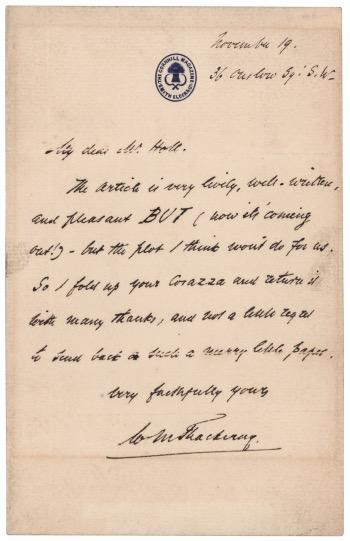 November 19.
THE CORNHILL MAGAZINE
SMITH ELDER & CO
36 Onslow Sqr. S.W.
My dear Mr. Holl.
The article is very lively, well-written,
and pleasant BUT (now it's coming
out!) - but the plot I think won't do for us.
So I fold up your Corazza and return it
with many thanks, and not a little regret
to send back such a merry little paper.
Very faithfully yours
W M Thackeray.